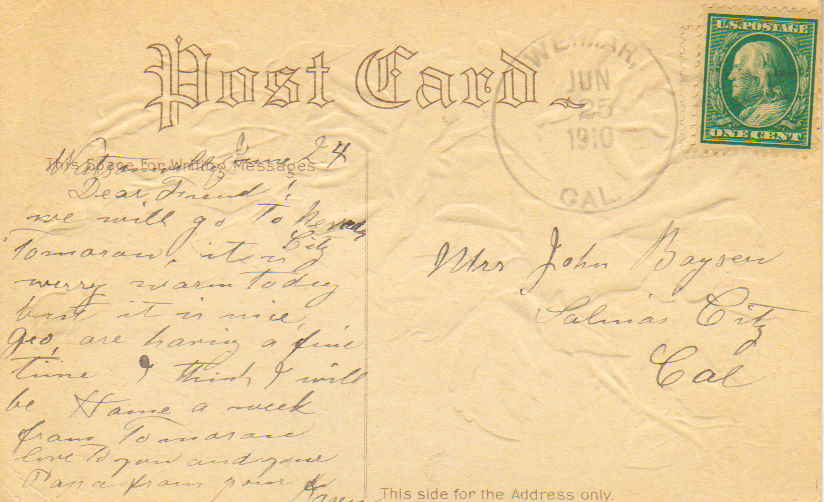 Post Card
WEIMAR,
JUN
25
1910
CAL.
U.S. POSTAGE
ONE CENT
This Space For Writing Messages
June 24
Dear Friend!
we will go to Nevada
City
Tomorow, its
werry warm Today
but it is nice,
Geo, are having a fine
time I think I will
be Home a week
from Tomorow
love to you and your
from your
Mrs John Boysen
Salinas City
Cal
This side for the Address only.